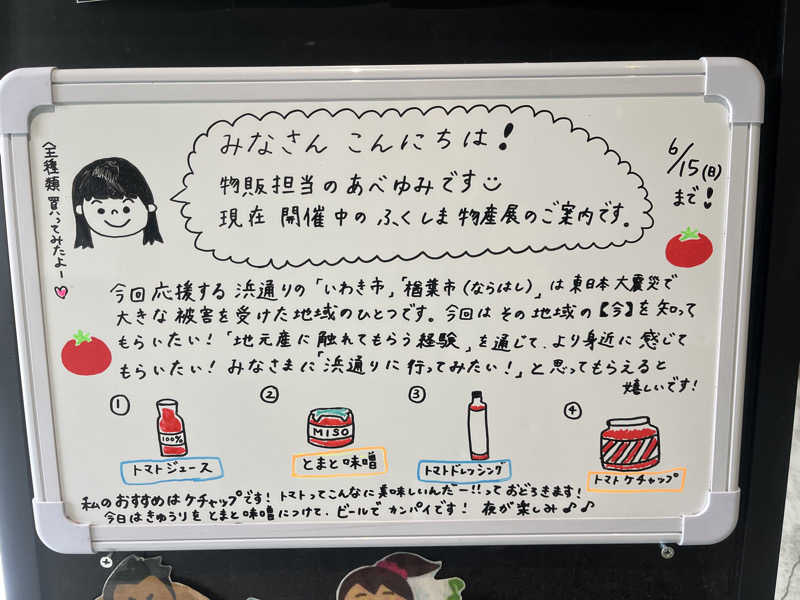 全種類買ってみたよー
みなさん こんにちは!
物販担当のあべゆみです
現在 開催中の ふくしま物産展のご案内です。
6/15(日)
まで!
今回 応援する 浜通りの「いわき市」「楢葉市(ならはし)」は東日本大震災で
大きな被害を受けた地域のひとつです。今回は その 地域の【今】を知って
もらいたい!「地元産に触れてもらう経験」を通じて、より身近に感じて
もらいたい! みなさまに「浜通りに行ってみたい!」と思ってもらえると
嬉しいです!
①
②
③
④
100%
MISO
トマトジュース
とまと味噌
トマトドレッシング
トマトケチャップ
私のおすすめはケチャップです! トマトってこんなに美味しいんだー!!っておどろきます!
今日はきゅうりをとまと味噌につけて、ビールでカンパイです! 夜が楽しみ♪♪